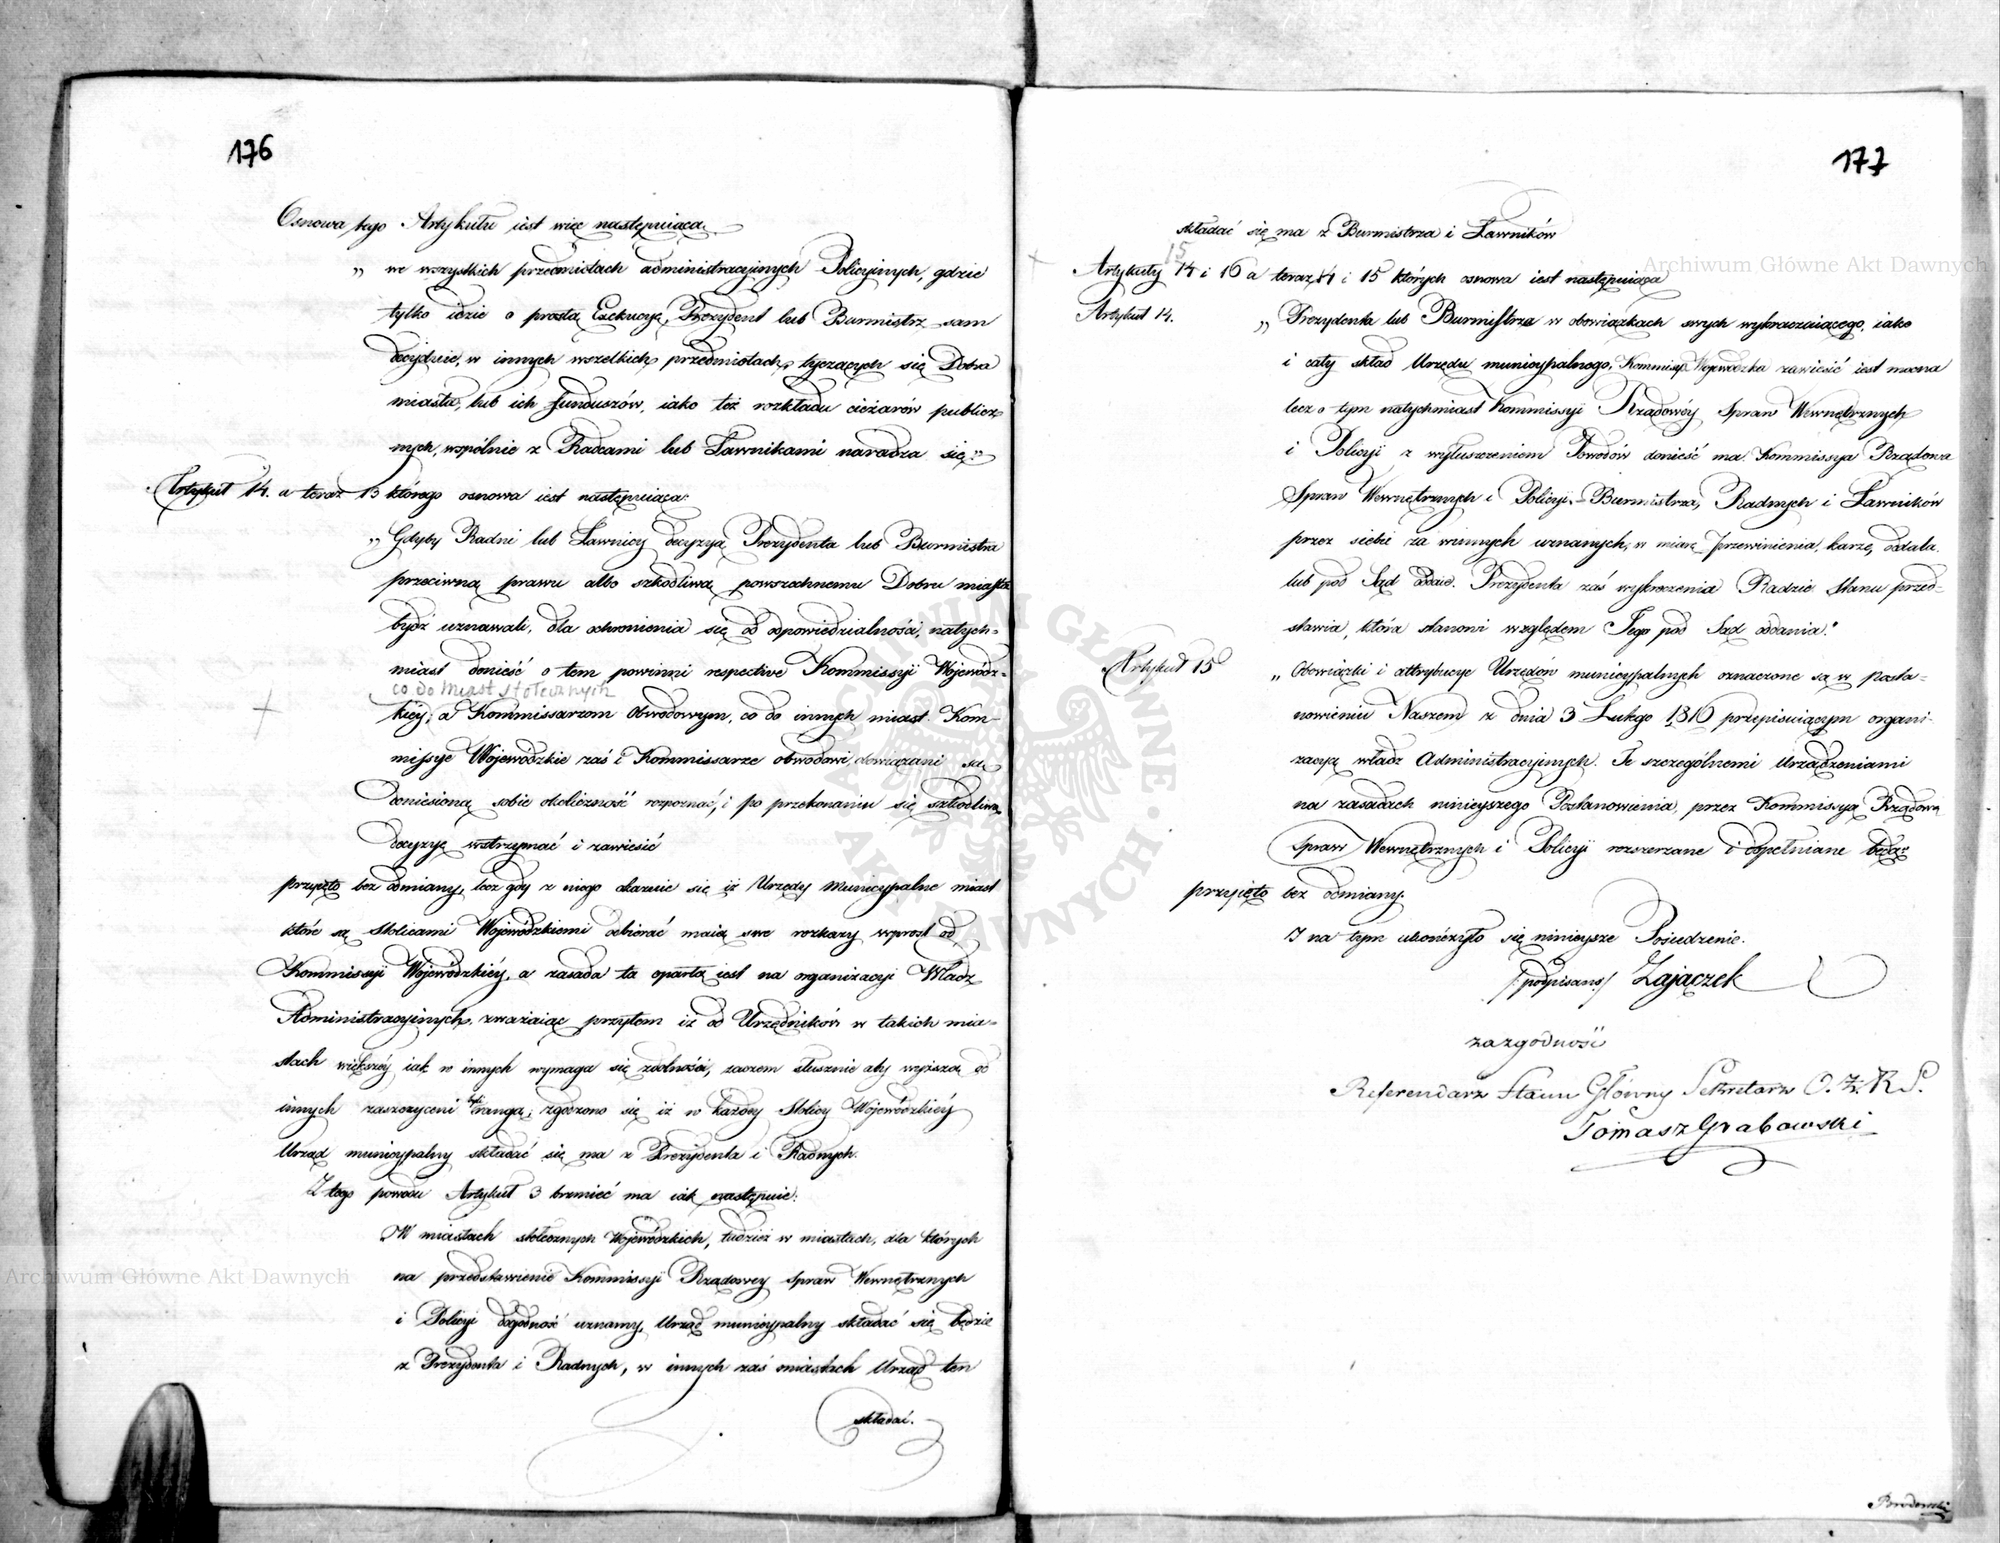 176
Osnowa tego Artykułu iest więc następuiąca.
„ we wszystkich przedmiotach administracyjnych Policyjnych, gdzie
tylko idzie o prostą Exekucyę, Prezydent lub Burmistrz sam
decyduie, w innych wszelkich przedmiotach, tyczących się Dobra
miasta, lub ich funduszów, iako też rozkładu ciężarów publicz=
nych, wspólnie z Radcami lub Ławnikami naradza się „
Artykuł 14. a teraz 13 którego osnowa iest następuiąca:
„ Gdyby Radni lub Ławnicy decyzyą Prezydenta lub Burmistrza
przeciwną prawu albo szkodliwą powszechnemu Dobru miasta
bydź uznawali, dla ochronienia się od odpowiedzialności, natych=
miast donieść o tem powinni respective Kommissyi Wojewódz=
co do miast stołecznych
kiey; a Kommissarzom Obwodowym, co do innych miast. Kom=
missye Wojewódzkie zaś i Kommissarze obwodowi, obowiązani są
doniesioną sobie okoliczność rozpoznać, i po przekonaniu się szkodliwą
decyzyę wstrzymać i zawiesić
przyięto bez odmiany, lecz gdy z niego okazuie się iż Urzędy Municypalne miast
które są Stolicami Wojewódzkiemi odbierać maią swe rozkazy wprost od
Kommissyi Wojewódzkiéy, a zasada ta opartą iest na organizacyi Władz
Administracyjnych, zważaiąc przytem iż od Urzędników w takich mia=
stach większéy iak w innych wymaga się zdolności, zaczem słusznie aby wyższą od
innych zaszczyceni byli rangą; zgodzono się iż w każdey Stolicy Wojewódzkiéy
Urząd municypalny składać się ma z Prezydenta i Radnych.
Z tego powodu Artykuł 3 brzmieć ma iak następuie:
W miastach stołecznych Wojewódzkich, tudzież w miastach, dla których
na przedstawienie Kommissyi Rządowey Spraw Wewnętrznych
i Policyi dogodność uznamy, Urząd municypalny składać się będzie
z Prezydenta i Radnych, w innych zaś miastach Urząd ten
składać.
177
składać się ma z Burmistrza i Ławników
15
Artykuły 14 i 16 a teraz 14 i 15 których osnowa iest następuiąca
Artykuł 14.
„ Prezydenta lub Burmistrza w obowiązkach swych wykraczaiącego, iako
i cały skład Urzędu municypalnego, Kommissya Wojewódzka zawiesić iest mocna
lecz o tym natychmiast Kommissyi Rządowéy Spraw Wewnętrznych
i Policyi z wyłuszczeniem Powodów donieść ma. Kommissya Rządowa
Spraw Wewnętrznych i Policyi, Burmistrza, Radnych i Ławników
przez siebie za winnych uznanych, w miarę przewinienia, karze, oddala
lub pod Sąd oddaie. Prezydenta zaś wykroczenia Radzie Stanu przed=
stawia, która stanowi względem Jego pod Sąd oddania.
Artykuł 15
„ Obowiązki i attrybucye Urzędów municypalnych oznaczone są w posta=
nowieniu Naszem z dnia 3 Lutego 1816 przepisuiącym organi=
zacyą władz Administracyjnych. Te szczególnemi Urządzeniami
na zasadach ninieyszego Postanowienia, przez Kommissyą Rządową
Spraw Wewnętrznych i Policyi rozszerzane i dopełniane będą
przyięto bez odmiany.
I na tym ukończyło się ninieysze Posiedzenie.
/:podpisano:/ Zajączek
za zgodność
Referendarz Stanu Główny Sekretarz
Tomasz Grabowski
Archiwum Główne Akt Dawnych
Archiwum Główne Akt Dawnych
ARCHIWUM GŁÓWNE AKT DAWNYCH